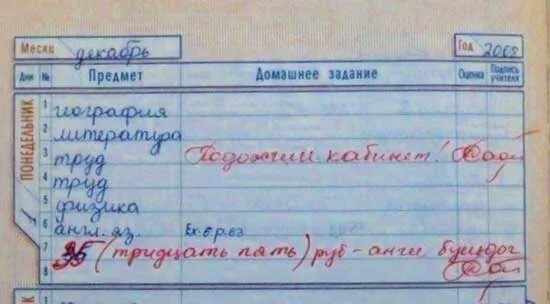 Месяц декабрь Год 2008
Дни № Предмет Домашнее задание Оценка Подпись учителя
ПОНЕДЕЛЬНИК
1 география
2 литература
3 труд Подожгли кабинет!
4 труд
5 физика
6 англ. яз. Ex. 6
7 35 (тридцать пять) руб - англ. бульдог
8
1